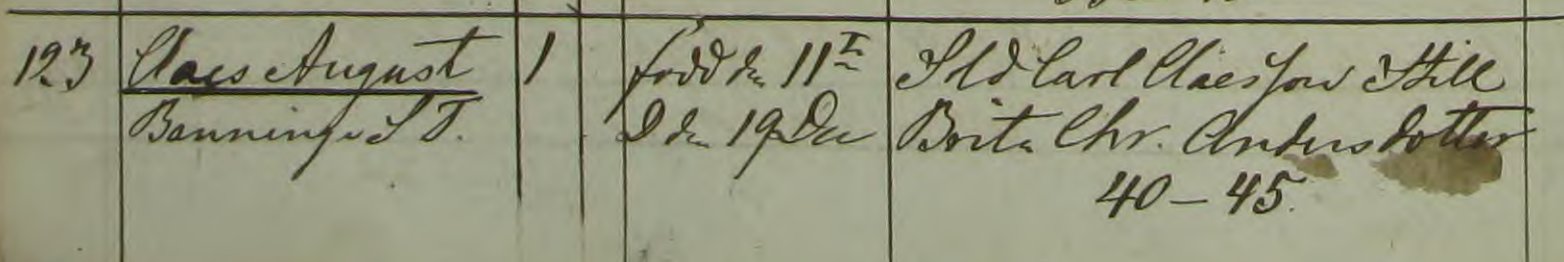 123 Claes August 1 född den 11te Sld Carl Claesson Still
Banninge S T. D den 19 Dec Brita Chr. Andersdotter
40 – 45.